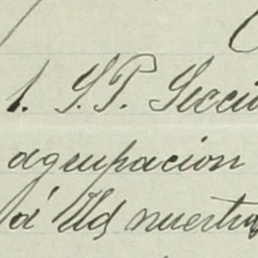 1. S. P. Secció
agrupacion
á Uds nuestro